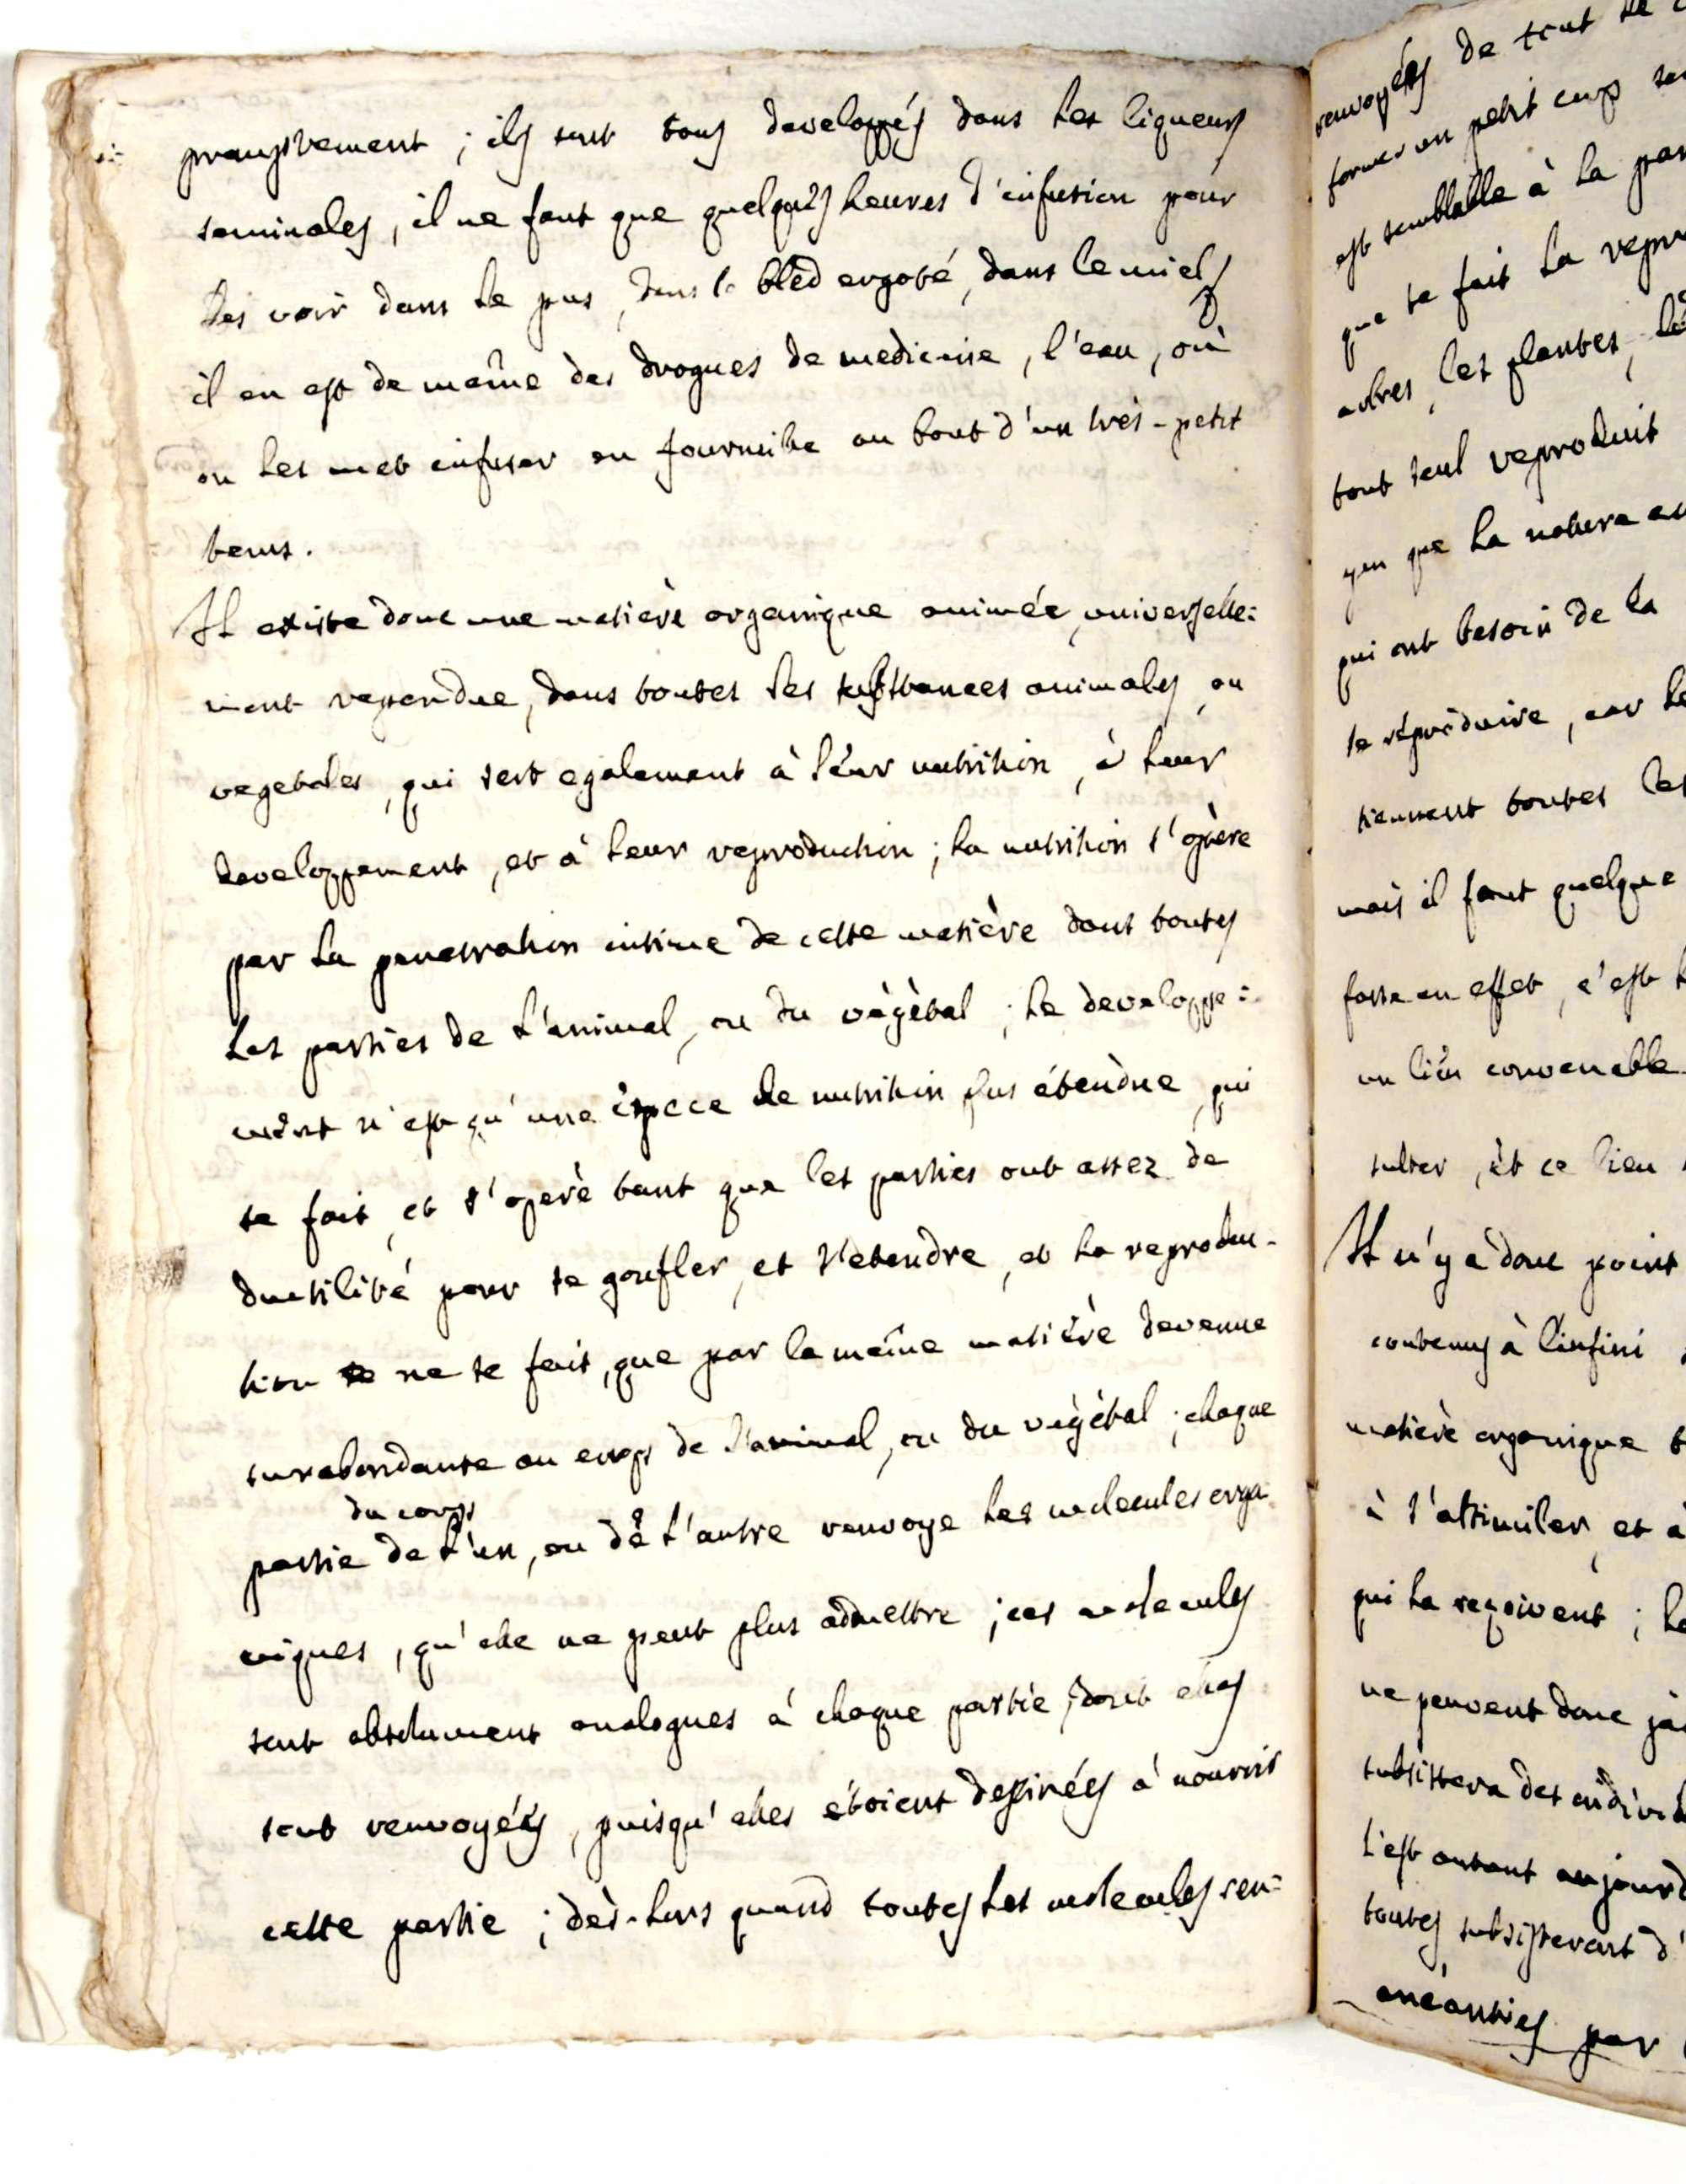 promptement ; ils sont tous developpés dans les liqueurs
seminales, il ne faut que quelques heures d'infusion pour
les voir dans le pus, dans le bled ergoté, dans le miel,
il en est de même des drogues de medicine, l'eau, où
on les met infuser en fourmille au bout d'un très-petit
tems.
Il existe donc une matière organique animée, universelle=
ment rependue, dans toutes les substances animales, ou
vegetales, qui sert egalement à leur nutrition, à leur
developpement, et à leur reproduction ; la nutrition s'opère
par la penetration intime de cette matière dans toutes
les parties de l'animal, ou du végètal ; le developpe=
ment n'est qu'une éspece de nutrition plus étendue, qui
se fait, et s'operè tant que les parties ont assez de
ductilité pour se gonfler, et s'etendre, et la reproduc-
tion ne se fait, que par la même matière devenue
surabondante au corps de l'animal, ou du végètal ; chaque
du corps
partie de l'un, ou de l'autre renvoye les molecules orga
niques, qu'elle ne peut plus admettre ; ces molecules
sont absolument analogues à chaque partie, dont elles
sont renvoyées, puisqu'elles étoient destinées à nourrir
cette partie ; dès-lors quand toutes les molecules ren=
renvoyées de tout le
former un petit corps
est semblable à la
que se fait la
arbres, les plantes,
tout seul reproduit
yen que la nature
qui ont besoin de la
se réproduire, car
tiennent toutes les
mais il faut quelque
fasse en effet, c'est
un lieu convenable
sulter, et ce lieu
Il n'y a donc point
contenus à l'infini
matière organique
à s'assimiler, et à
qui la reçoivent ;
ne peuvent donc
subsistera des
l'est autant
toutes subsisteront d'
anéanties par